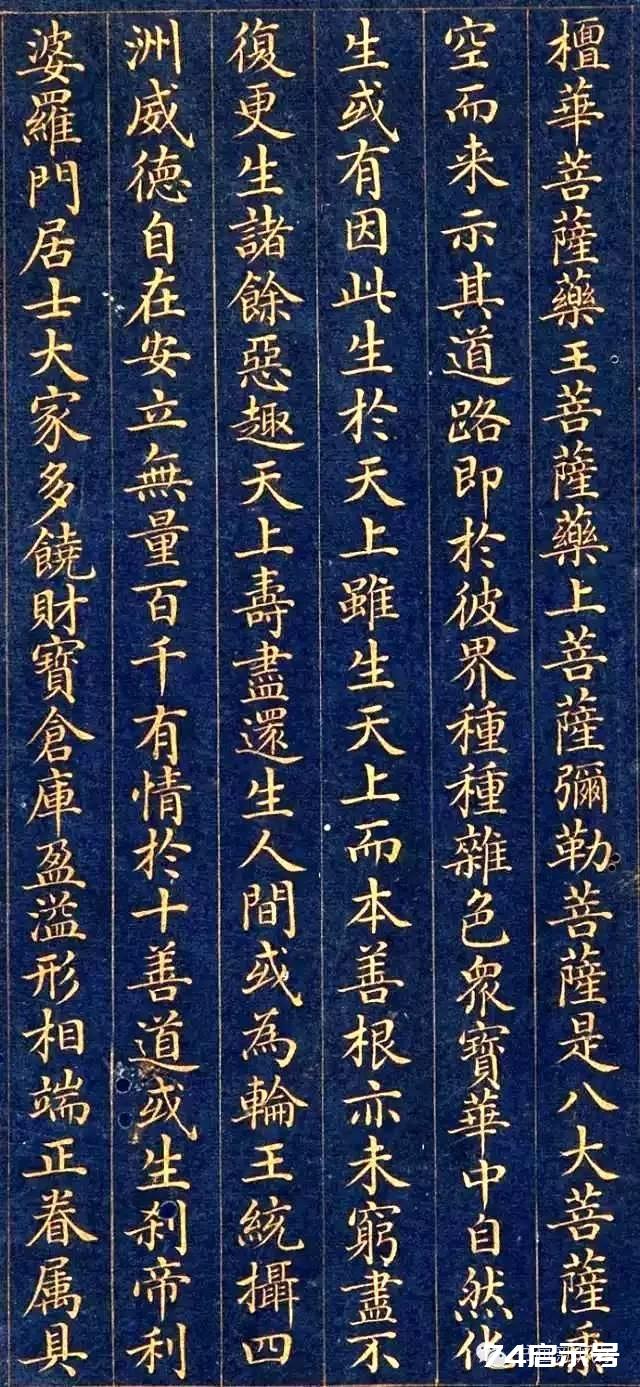 檀華菩薩藥王菩薩藥上菩薩彌勒菩薩是八大菩薩乘
空而来示其道路即於彼界種種雜色衆寶華中自然化
生或有因此生於天上雖生天上而本善根亦未窮盡不
復更生諸餘惡趣天上壽盡還生人間或為輪王統攝四
洲威德自在安立無量百千有情於十善道或生剎帝利
婆羅門居士大家多饒財寶倉庫盈溢形相端正眷属具
74启示号